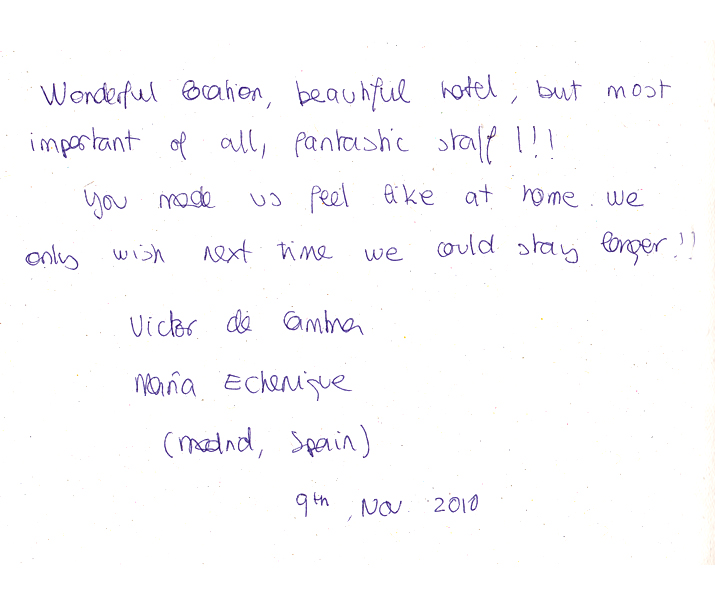 Wonderful location, beautiful hotel, but most
important of all, fantastic staff!!!
You made us feel like at home. We
only wish next time we could stay longer!!
Victor de
María Echenique
(Madrid, Spain)
9th, Nov 2010